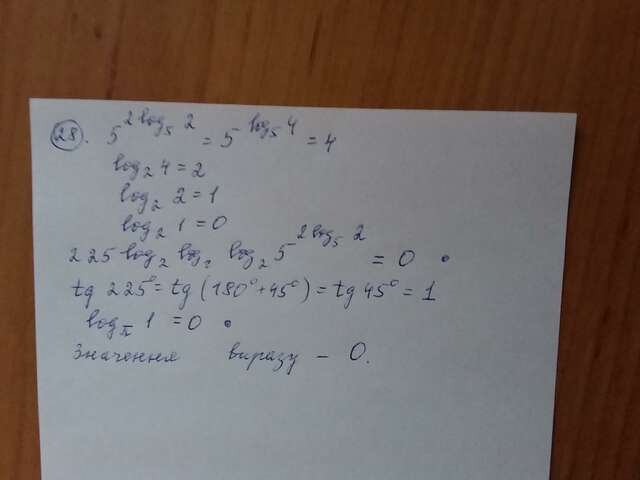 28. 5^(2log₅2) = 5^(log₅4) = 4
log₂4 = 2
log₂ 2 = 1
log₂ 1 = 0
225 log₂ log₂ log₂ 5^(2log₅2) = 0 .
tg 225° = tg (180° + 45°) = tg 45° = 1
log_π 1 = 0 .
Значення виразу – 0.